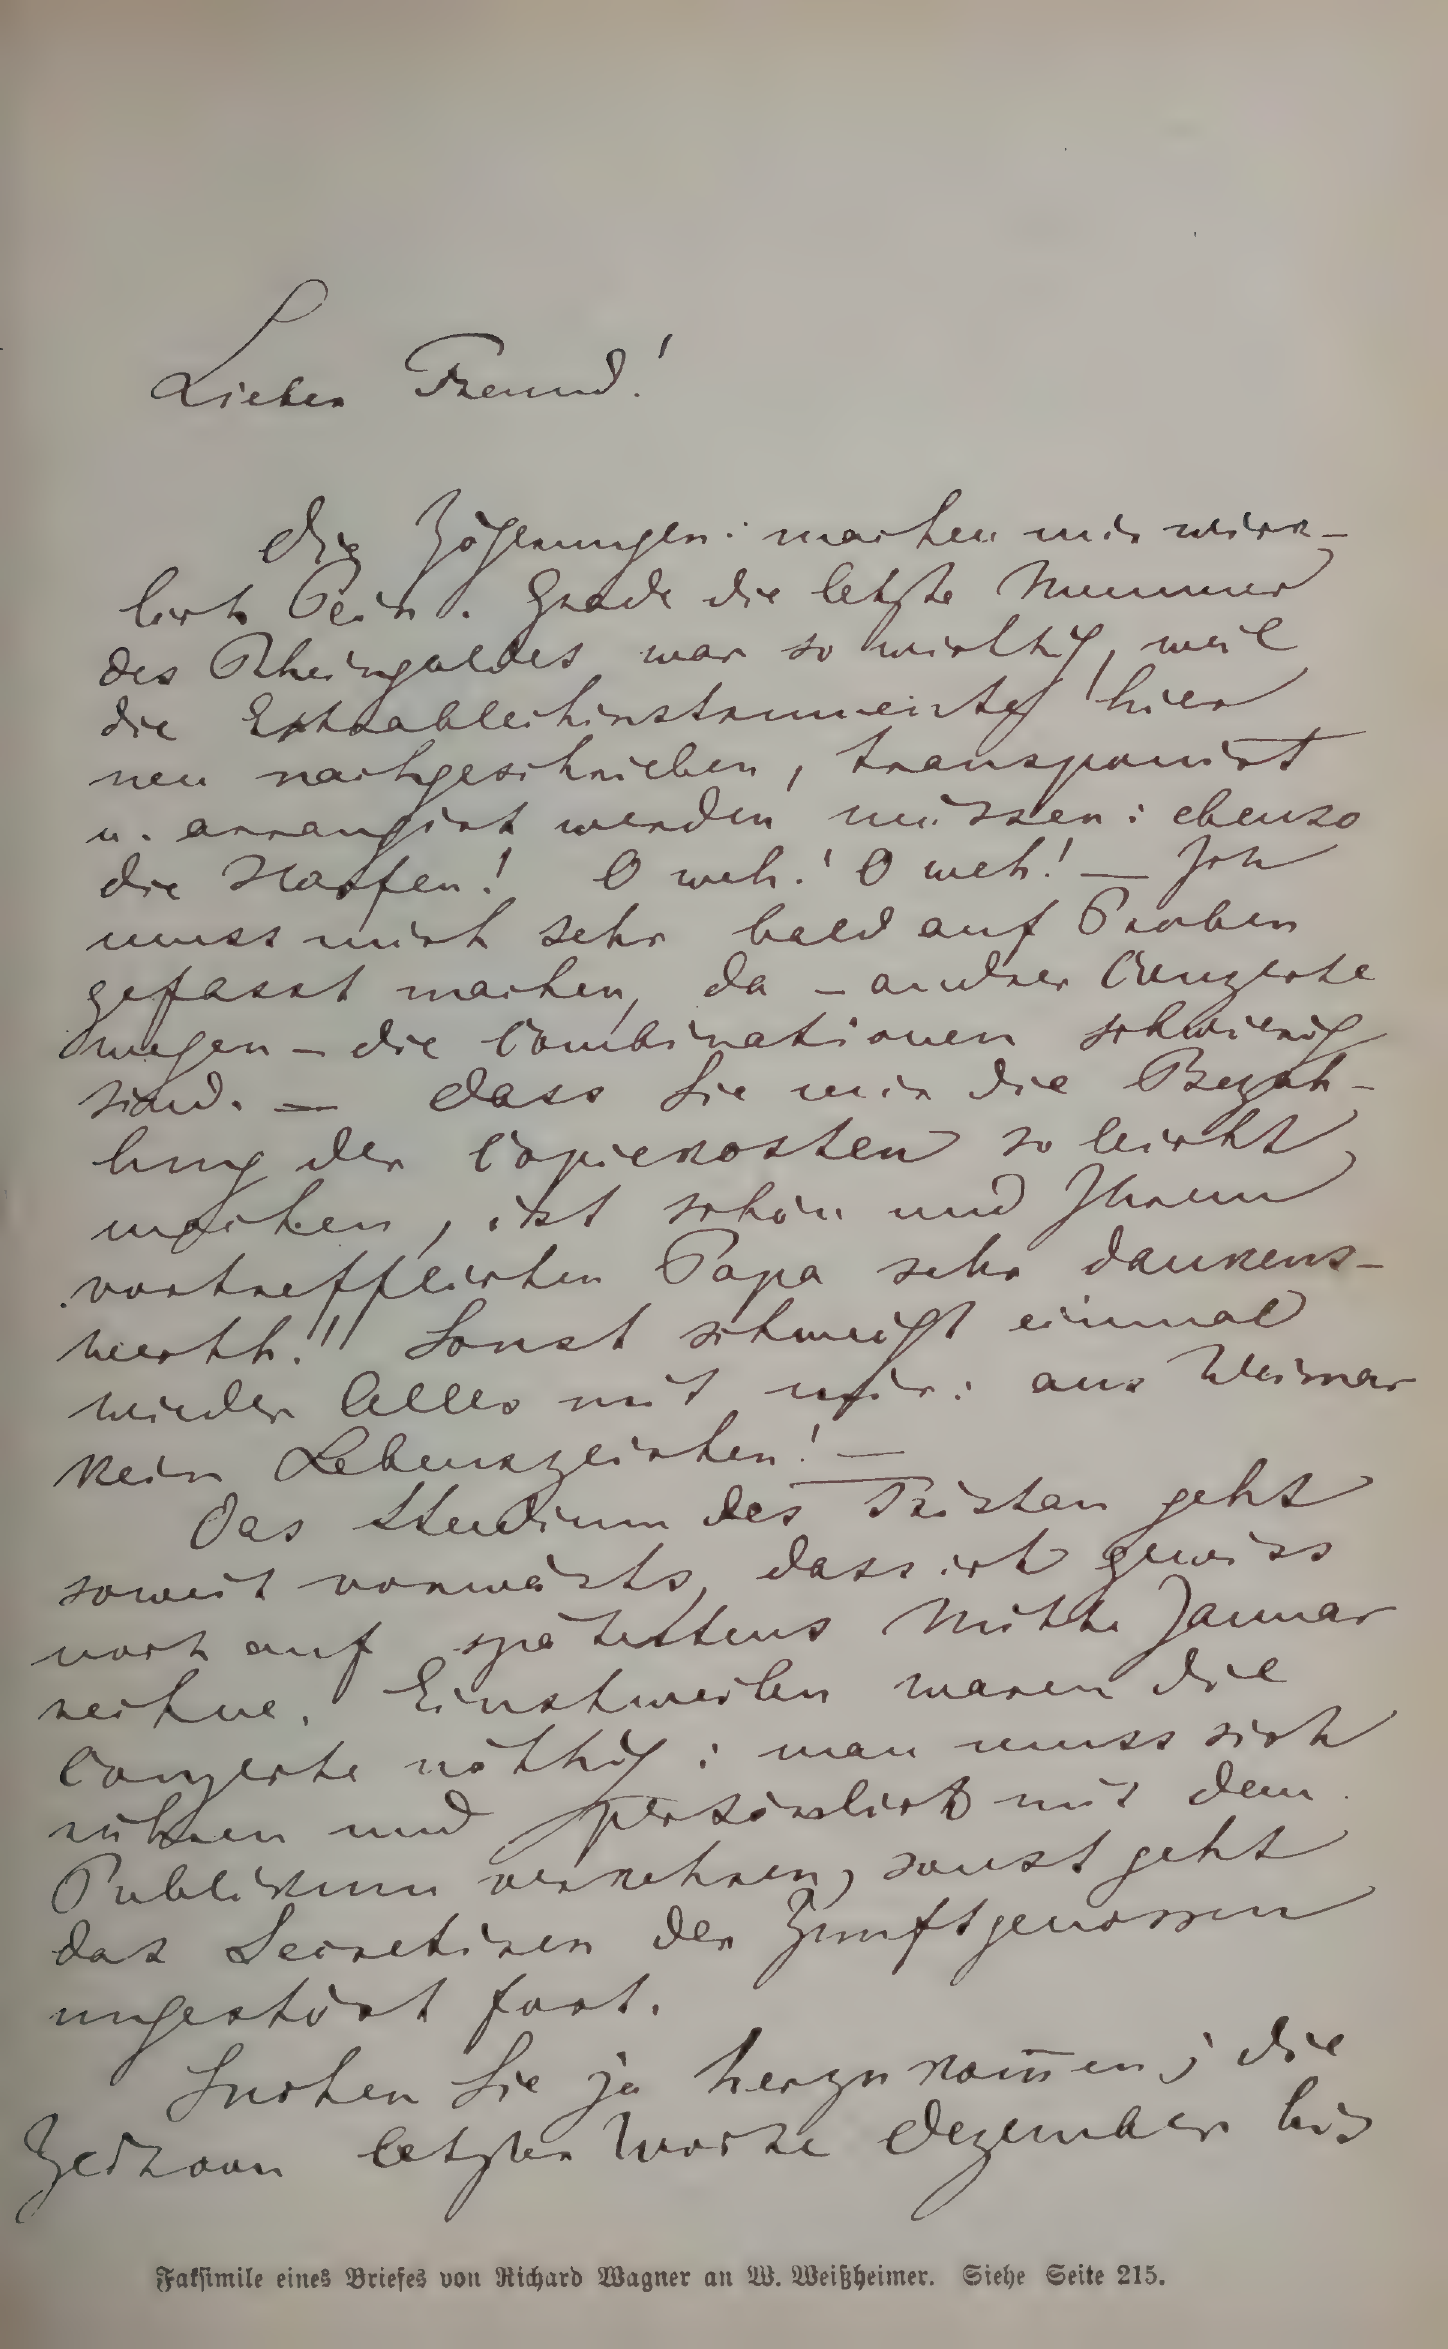 Lieber Freund!
Die Zögerungen machen mir wirk-
lich Pein. Grade die letzte Nummer
des Rheingoldes war so wichtig, weil
die Extrablechinstrumente hier
neu nachgeschrieben, transponirt
u. arrangirt werden müssen: ebenso
die Harfen! O weh! O weh! — Ich
muss mich sehr bald auf Proben
gefasst machen, da – andrer Conzerte
wegen – die Combinationen schwierig
sind. — Dass Sie mir die Bezah-
lung der Copiekosten so leicht
machen, ist schön und Ihrem
vortrefflichen Papa sehr dankens-
werth!! Sonst schweigt einmal
wieder Alles mit mir: aus Weimar
kein Lebenszeichen! —
Das Studium des Tristan geht
soweit vorwärts, dass ich gewiss
noch auf spätestens Mitte Januar
rechne. Einstweilen waren die
Conzerte nöthig: man muss sich
rühren und persönlich mit dem
Publikum verkehren, sonst geht
das Secretiren der Zunftgenossen
ungestört fort.
Suchen Sie ja herzukommen; die
Zeit von letzter Woche Dezember bis
Faksimile eines Briefes von Richard Wagner an W. Weißheimer. Siehe Seite 215.